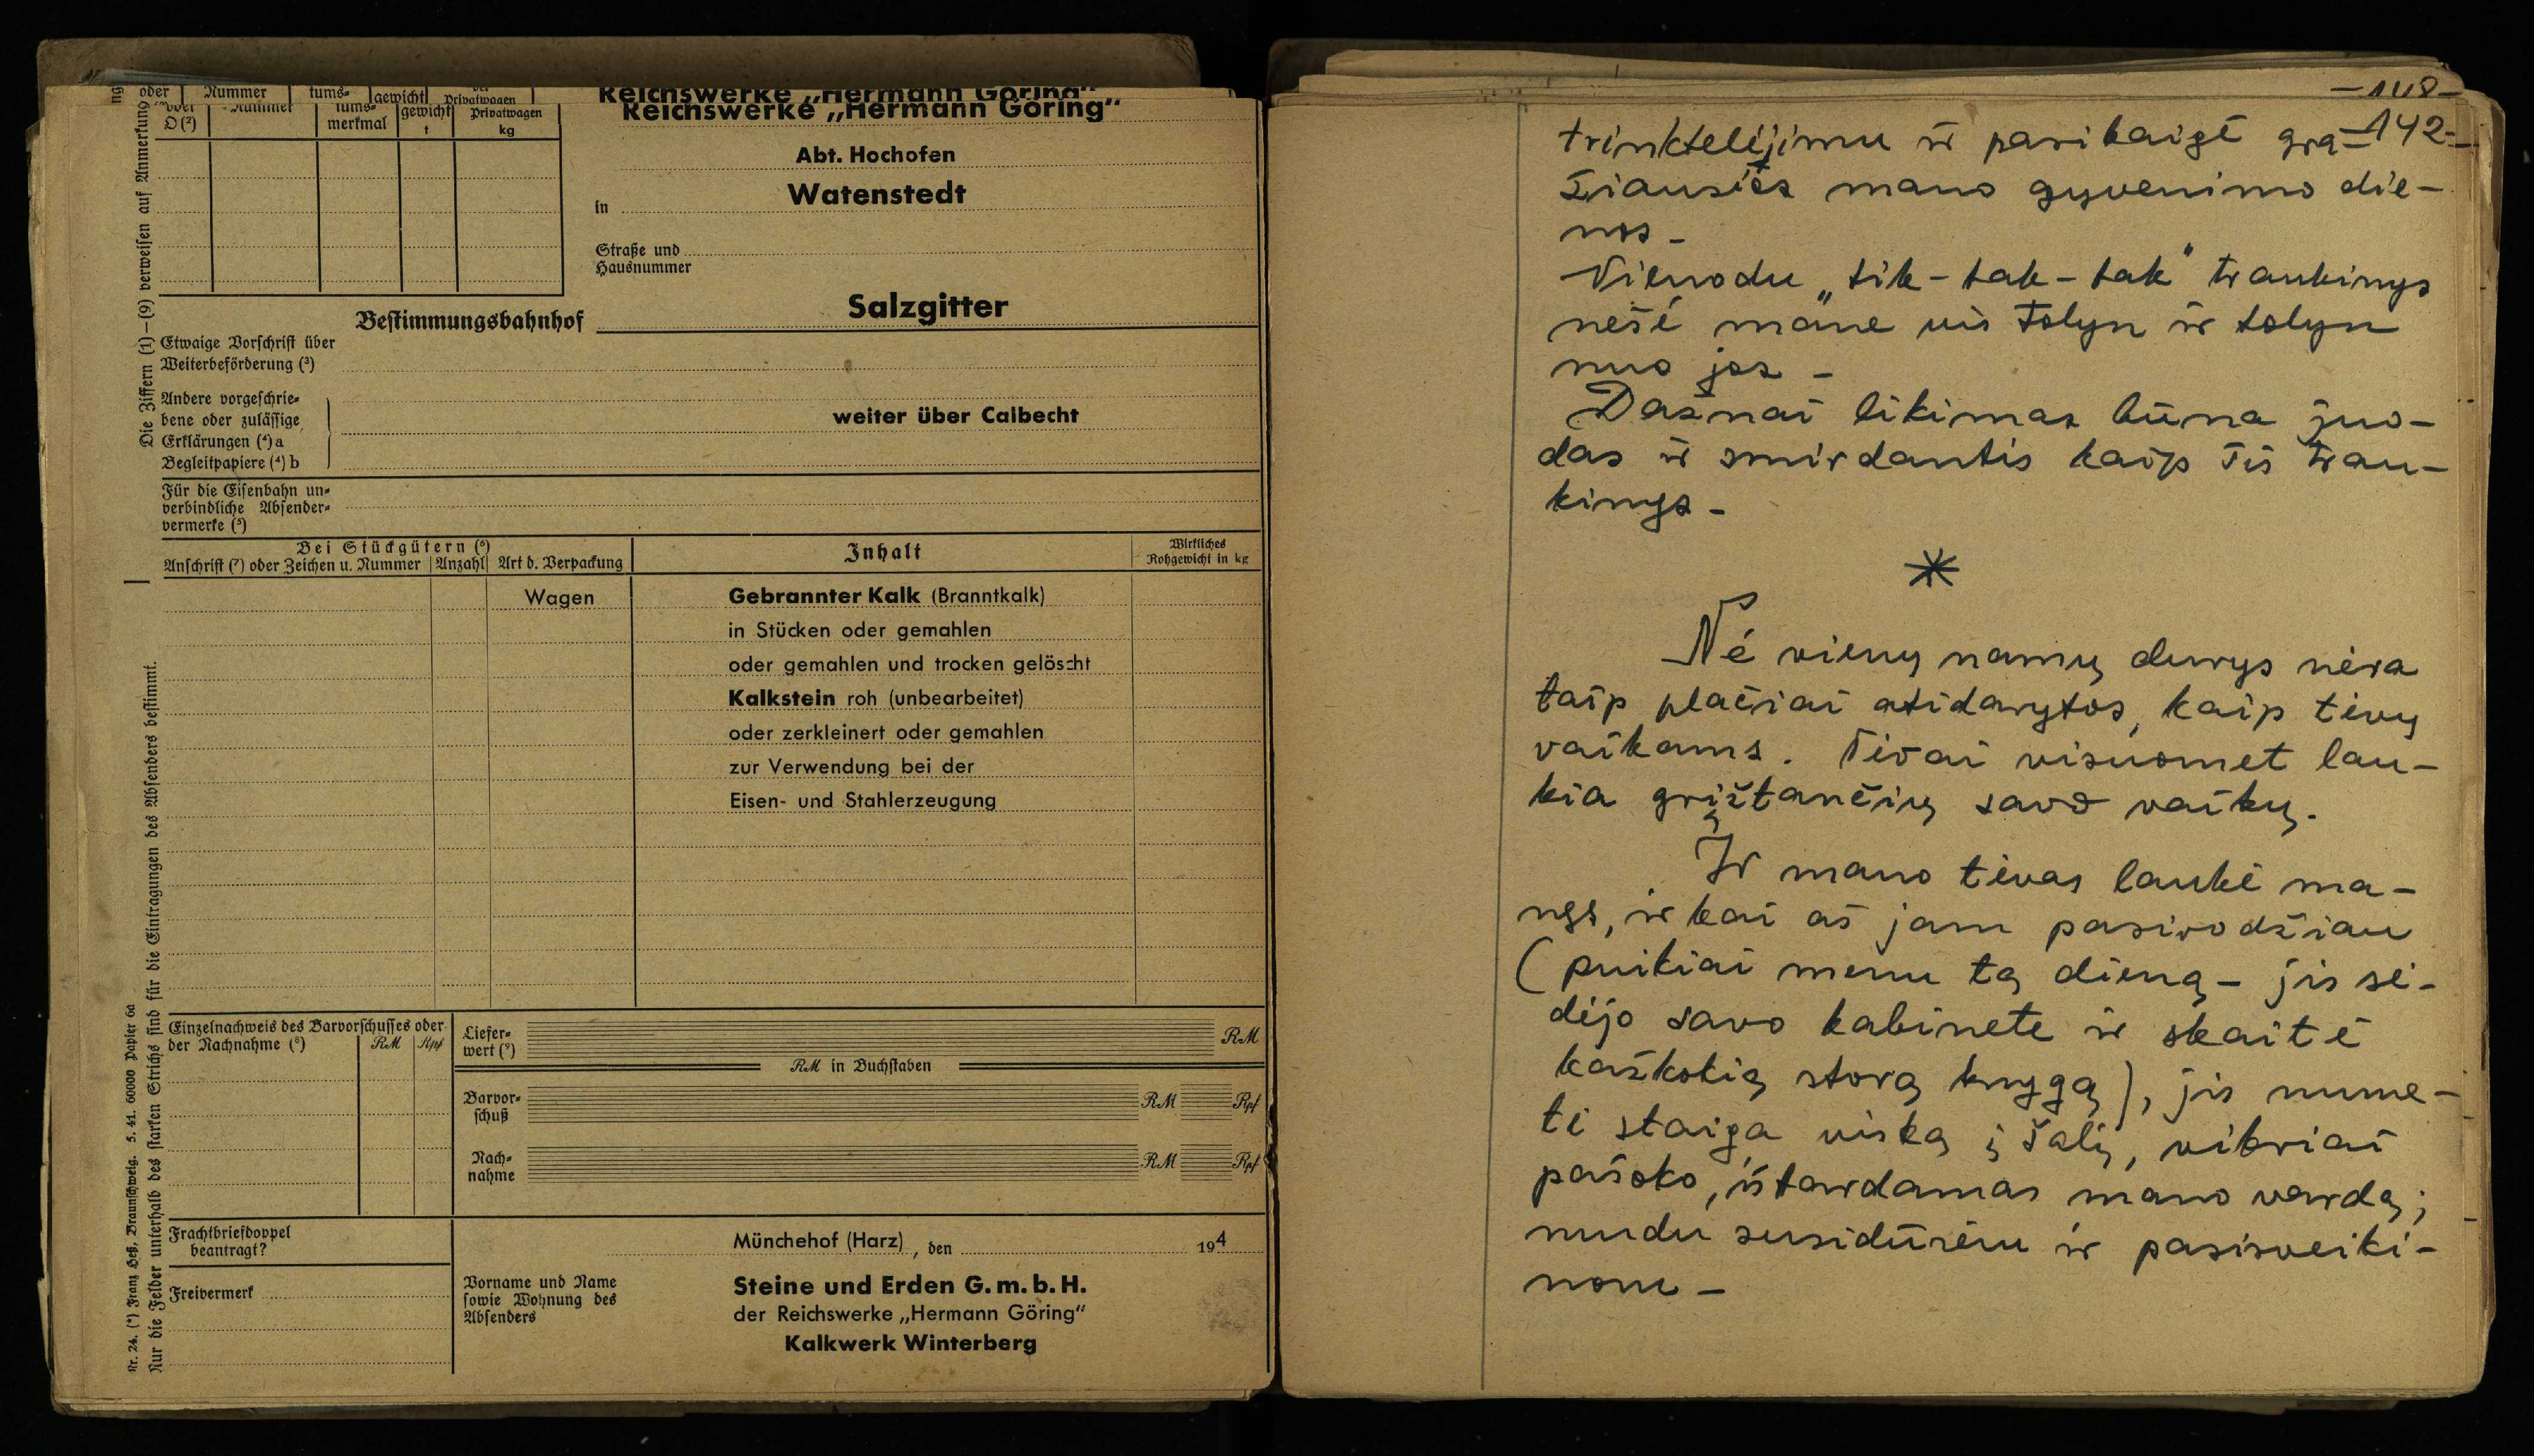 oder Nummer tums- gewicht Privatwagen
D (²) merkmal t kg
Reichswerke „Hermann Göring“
Reichswerke „Hermann Göring“
Abt. Hochofen
in Watenstedt
Straße und
Hausnummer
Bestimmungsbahnhof Salzgitter
Etwaige Vorschrift über
Weiterbeförderung (³)
Andere vorgeschrie-
bene oder zulässige
Erklärungen (⁴) a
Begleitpapiere (⁴) b
weiter über Calbecht
Für die Eisenbahn un-
verbindliche Absender-
vermerke (⁵)
Bei Stückgütern (⁶)
Anschrift (⁷) oder Zeichen u. Nummer Anzahl Art d. Verpackung
Inhalt
Wirkliches
Rohgewicht in kg
Wagen Gebrannter Kalk (Branntkalk)
in Stücken oder gemahlen
oder gemahlen und trocken gelöscht
Kalkstein roh (unbearbeitet)
oder zerkleinert oder gemahlen
zur Verwendung bei der
Eisen- und Stahlerzeugung
Einzelnachweis des Barvorschusses oder
der Nachnahme (⁸) RM Rpf
Liefer-
wert (⁹) RM
RM in Buchstaben
Barvor-
schuß RM Rpf
Nach-
nahme RM Rpf
Frachtbriefdoppel
beantragt?
Freivermerk
Münchehof (Harz), den 194
Vorname und Name
sowie Wohnung des
Absenders
Steine und Erden G. m. b. H.
der Reichswerke „Hermann Göring“
Kalkwerk Winterberg
Die Ziffern (1)–(9) verweisen auf Anmerkung
Nur die Felder unterhalb des starken Strichs sind für die Eintragungen des Absenders bestimmt.
Nr. 24. (*) Franz Heß, Braunschweig. 5. 41. 60000 Papier 6a
-148-
-142-
trinktelėjimu ir pasibaigė gra-
žiausios mano gyvenimo die-
nos -
Vienodu „tik-tak-tak" traukinys
nešė mane vis tolyn ir tolyn
nuo jos -
Dažnai likimas būna juo-
das ir smirdantis kaip šis trau-
kinys -
*
Nė vienų namų durys nėra
taip plačiai atidarytos, kaip tėvų
vaikams. Tėvai visuomet lau-
kia grįžtančių savo vaikų.
Ir mano tėvas laukė ma-
nęs, ir kai aš jam pasirodžiau
(puikiai menu tą dieną - jis sė-
dėjo savo kabinete ir skaitė
kažkokią storą knygą), jis nume-
tė staiga viską į šalį, vikriai
pašoko, ištardamas mano vardą;
mudu susidūrėm ir pasisveiki-
nom -